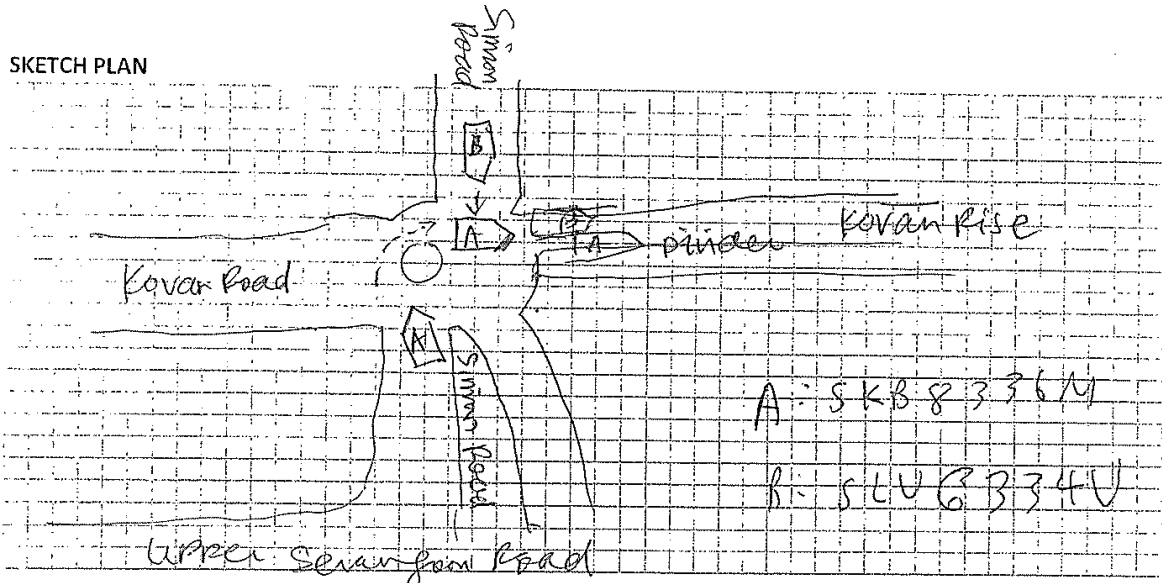 Simon
Road
SKETCH PLAN
B
A
B
A
Divider
Kovan Rise
Kovan Road
A
Simon Road
A: SKB8336M
B: SLV6334U
Upper Serangoon Road